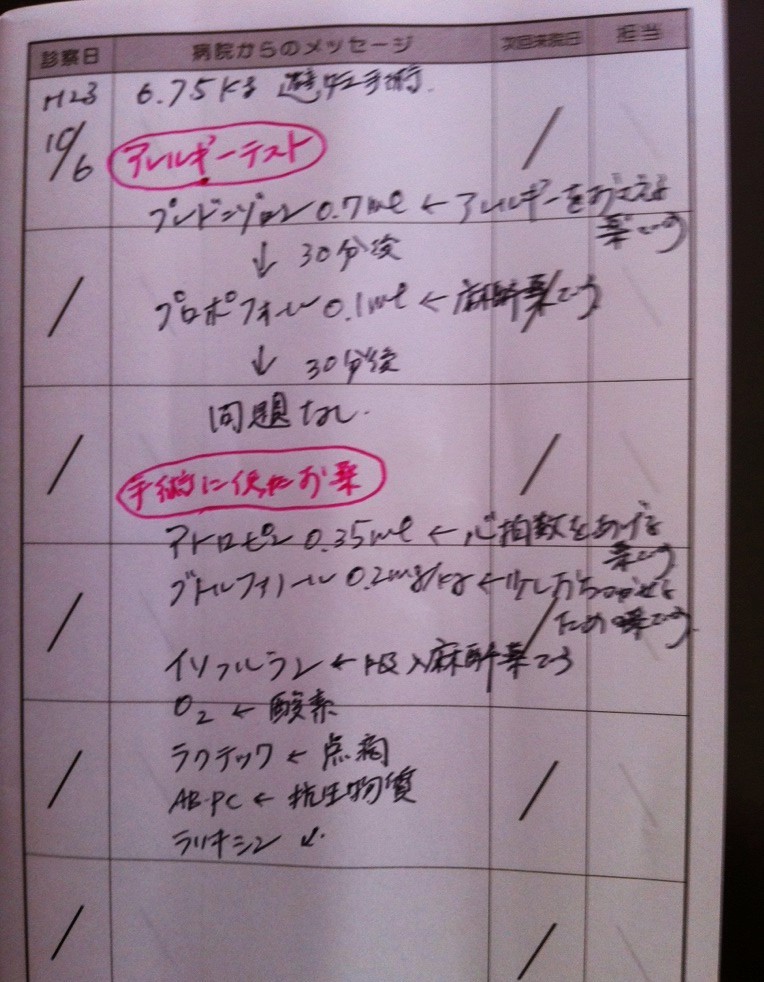 診察日 病院からのメッセージ 次回来院日 担当
H23 6.75kg 避妊手術.
10/6 アレルギーテスト
プレドニゾロン 0.7ml ← アレルギーをおさえる
薬です
↓ 30分後
プロポフォール 0.1ml ← 麻酔薬です
↓ 30分後
問題なし.
手術に使ったお薬
アトロピン 0.35ml ← 心拍数をあげる
薬です
ブトルファノール 0.2mg/kg ← 少しおちつかせる
ため 薬です.
イソフルラン ← 吸入麻酔薬です
O2 ← 酸素
ラクテック ← 点滴
AB-PC ← 抗生物質
ラリキシン ↙